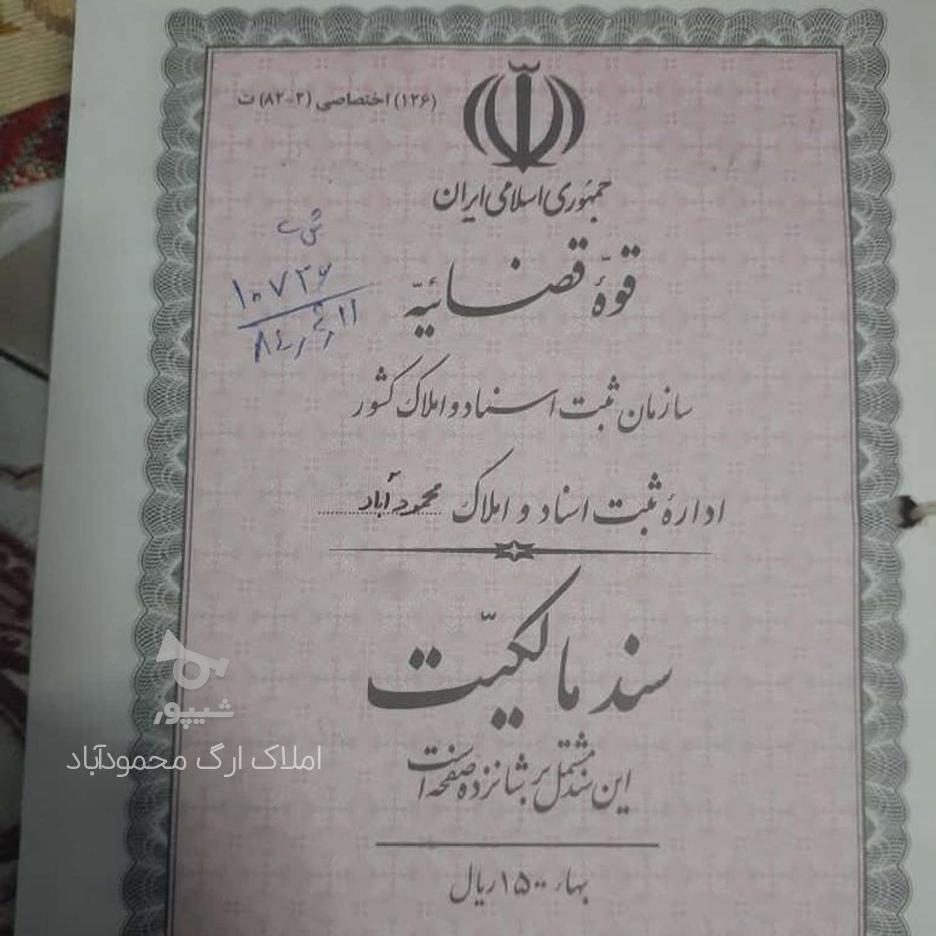 (۱۲۶) اختصاصی (۲-۸۲) ت
جمهوری اسلامی ایران
۱۰۷۳۶
قوهٔ قضائیّه
سازمان ثبت اسناد و املاک کشور
ادارهٔ ثبت اسناد و املاک محمودآباد
سند مالکیّت
شیپور
املاک ارگ محمودآباد
این سند مشتمل بر شانزده صفحه است
بهاء ۱۵۰۰ ریال